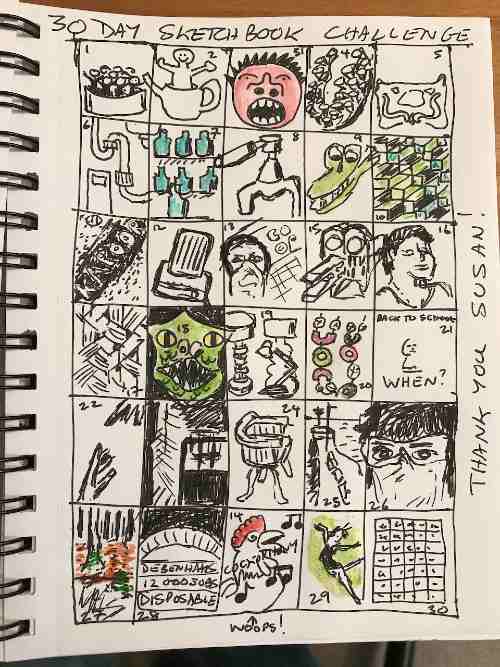 30 DAY SKETCHBOOK CHALLENGE
1
2
3
4
5
6
7
8
9
10
12
13
15
16
17
18
19
20
BACK TO SCHOOL
21
WHEN?
22
24
25
26
27
DEBENHAMS
12 000 JOBS
DISPOSABLE
28
14
COCKOPHONY
29
30
WOOPS!
THANK YOU SUSAN!